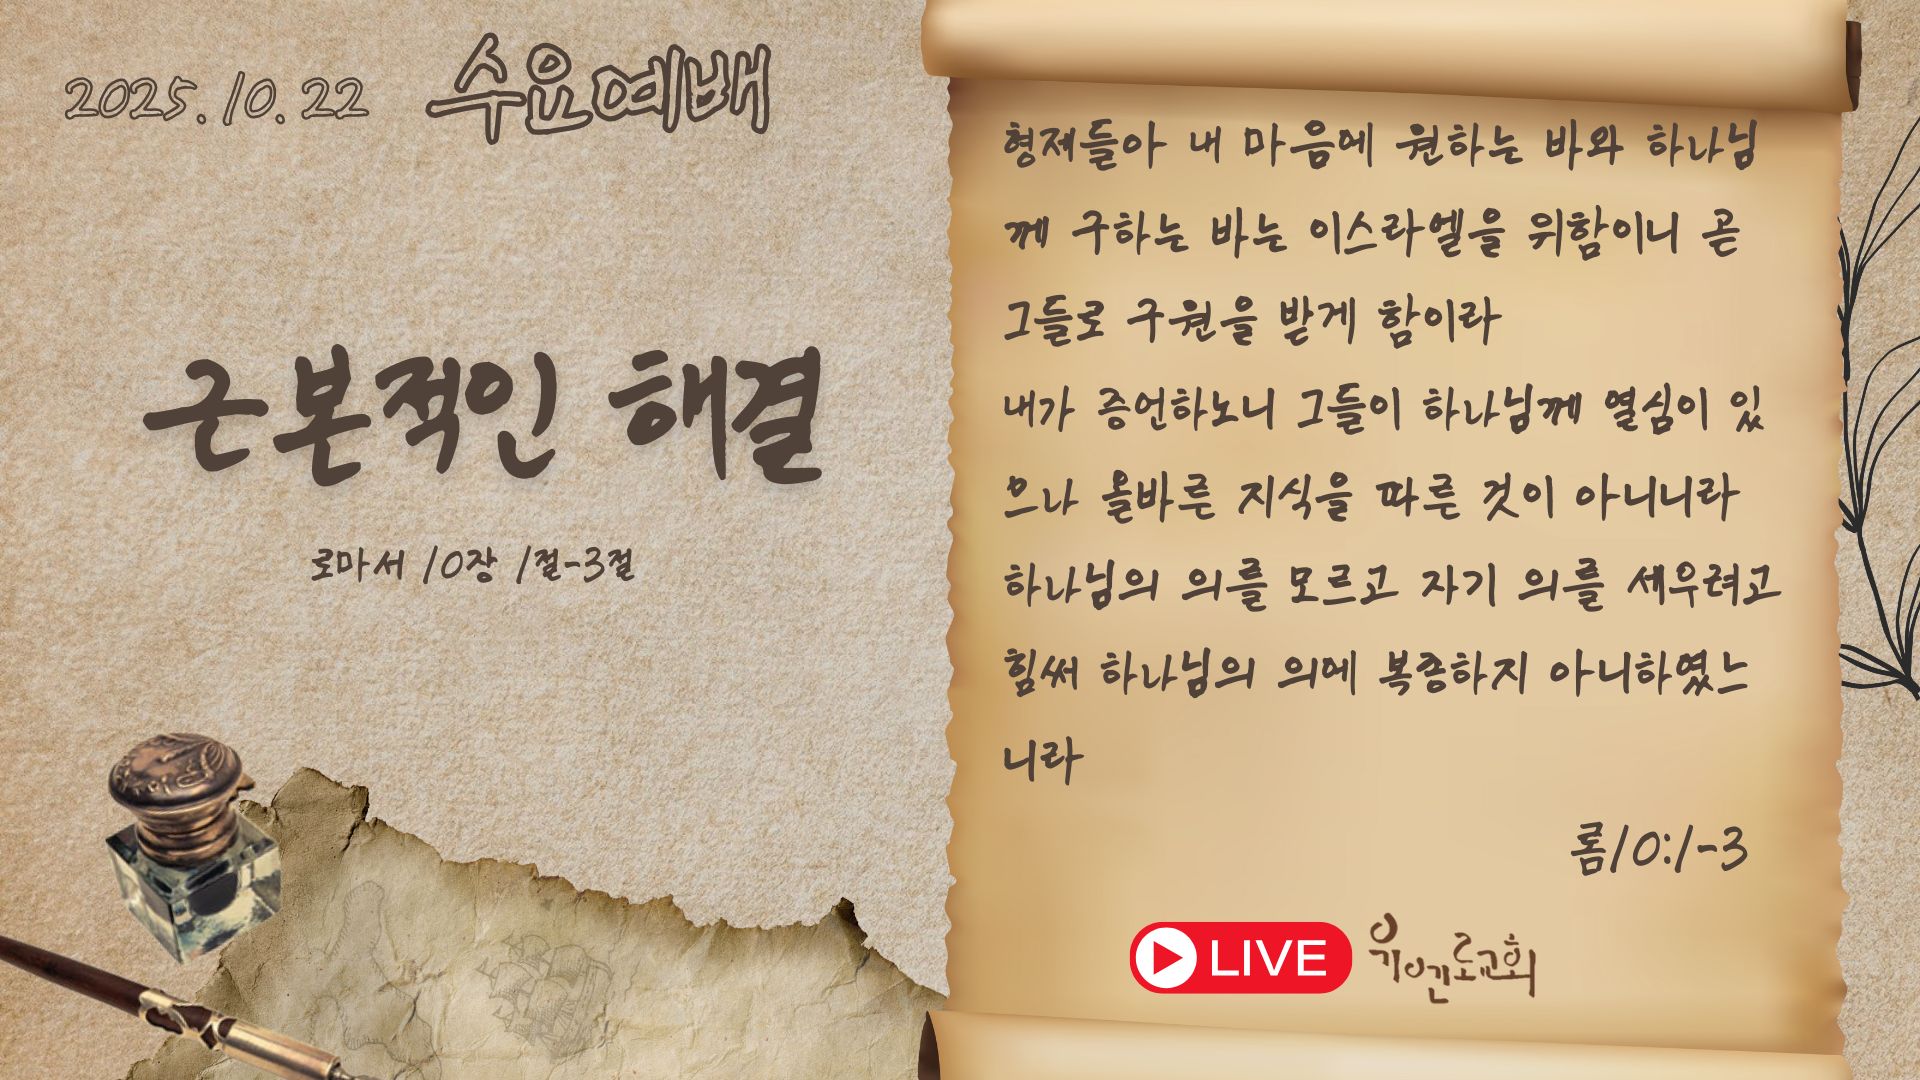 2025.10.22 수요예배
근본적인 해결
로마서 10장 1절-3절
형제들아 내 마음에 원하는 바와 하나님
께 구하는 바는 이스라엘을 위함이니 곧
그들로 구원을 받게 함이라
내가 증언하노니 그들이 하나님께 열심이 있
으나 올바른 지식을 따른 것이 아니니라
하나님의 의를 모르고 자기 의를 세우려고
힘써 하나님의 의에 복종하지 아니하였느
니라
롬10:1-3
LIVE